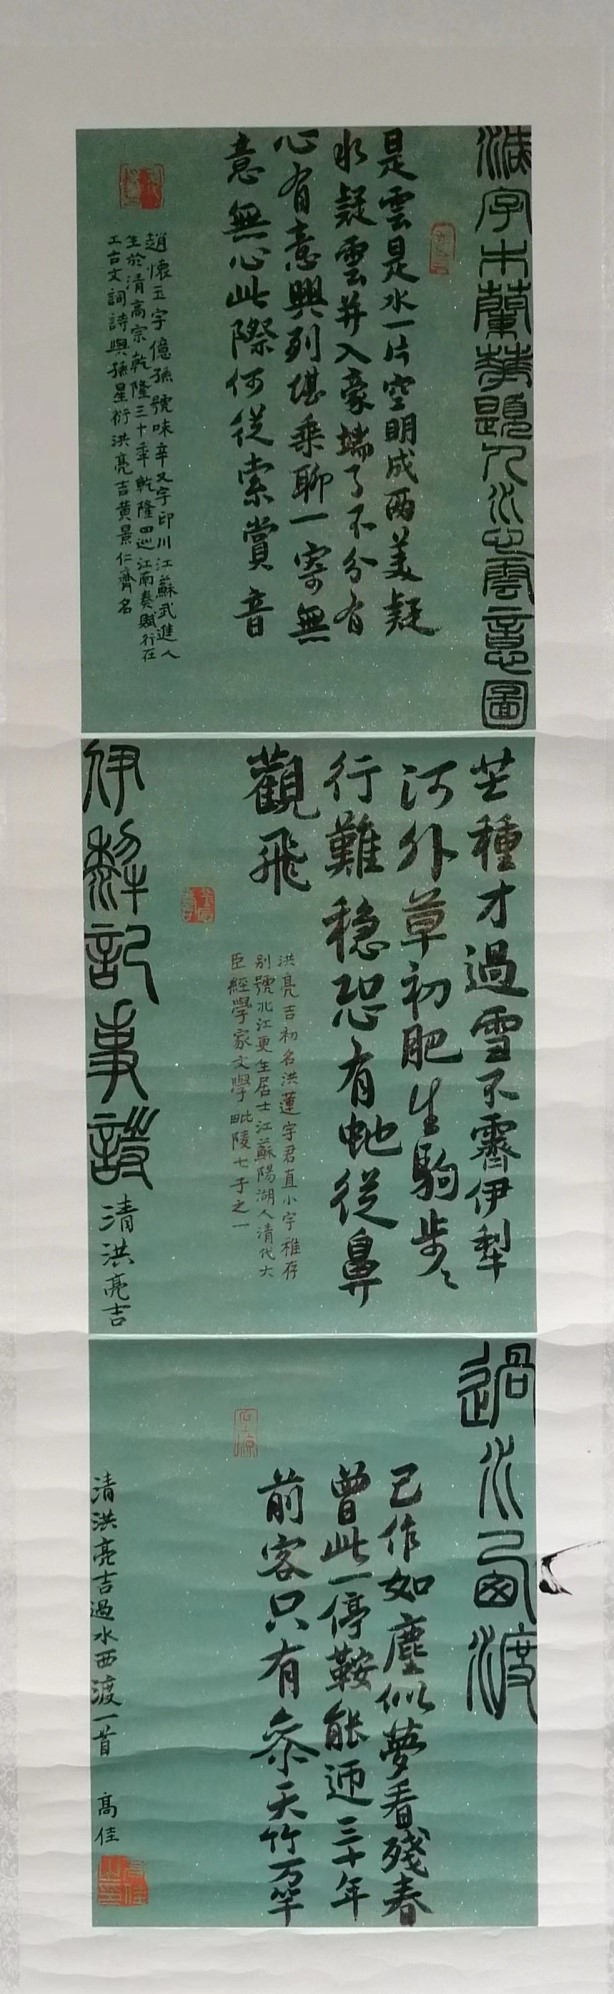 減字木蘭花題人水心雲意圖
是雲是水一片空明成兩美疑
水疑雲并入豪端了不分有
心有意興到堪乘聊一寄無
意無心此際何從索賞音
趙懷玉字億孫號味辛又字印川江蘇武進人
生於清高宗乾隆三十年乾隆四巡江南奏賦行在
工古文詞詩與孫星衍洪亮吉黄景仁齊名
芒種才過雪不霽伊犁
河外草初肥生駒步々
行難穩恐有虵從鼻
觀飛
洪亮吉初名洪蓮字君直小字稚存
别號北江更生居士江蘇陽湖人清代大
臣經學家文學毗陵七子之一
伊犂記事詩
清洪亮吉
過水西渡
已作如塵似夢看殘春
曾此一停鞍能迊三十年
前客只有參天竹万竿
清洪亮吉過水西渡一首
高佳